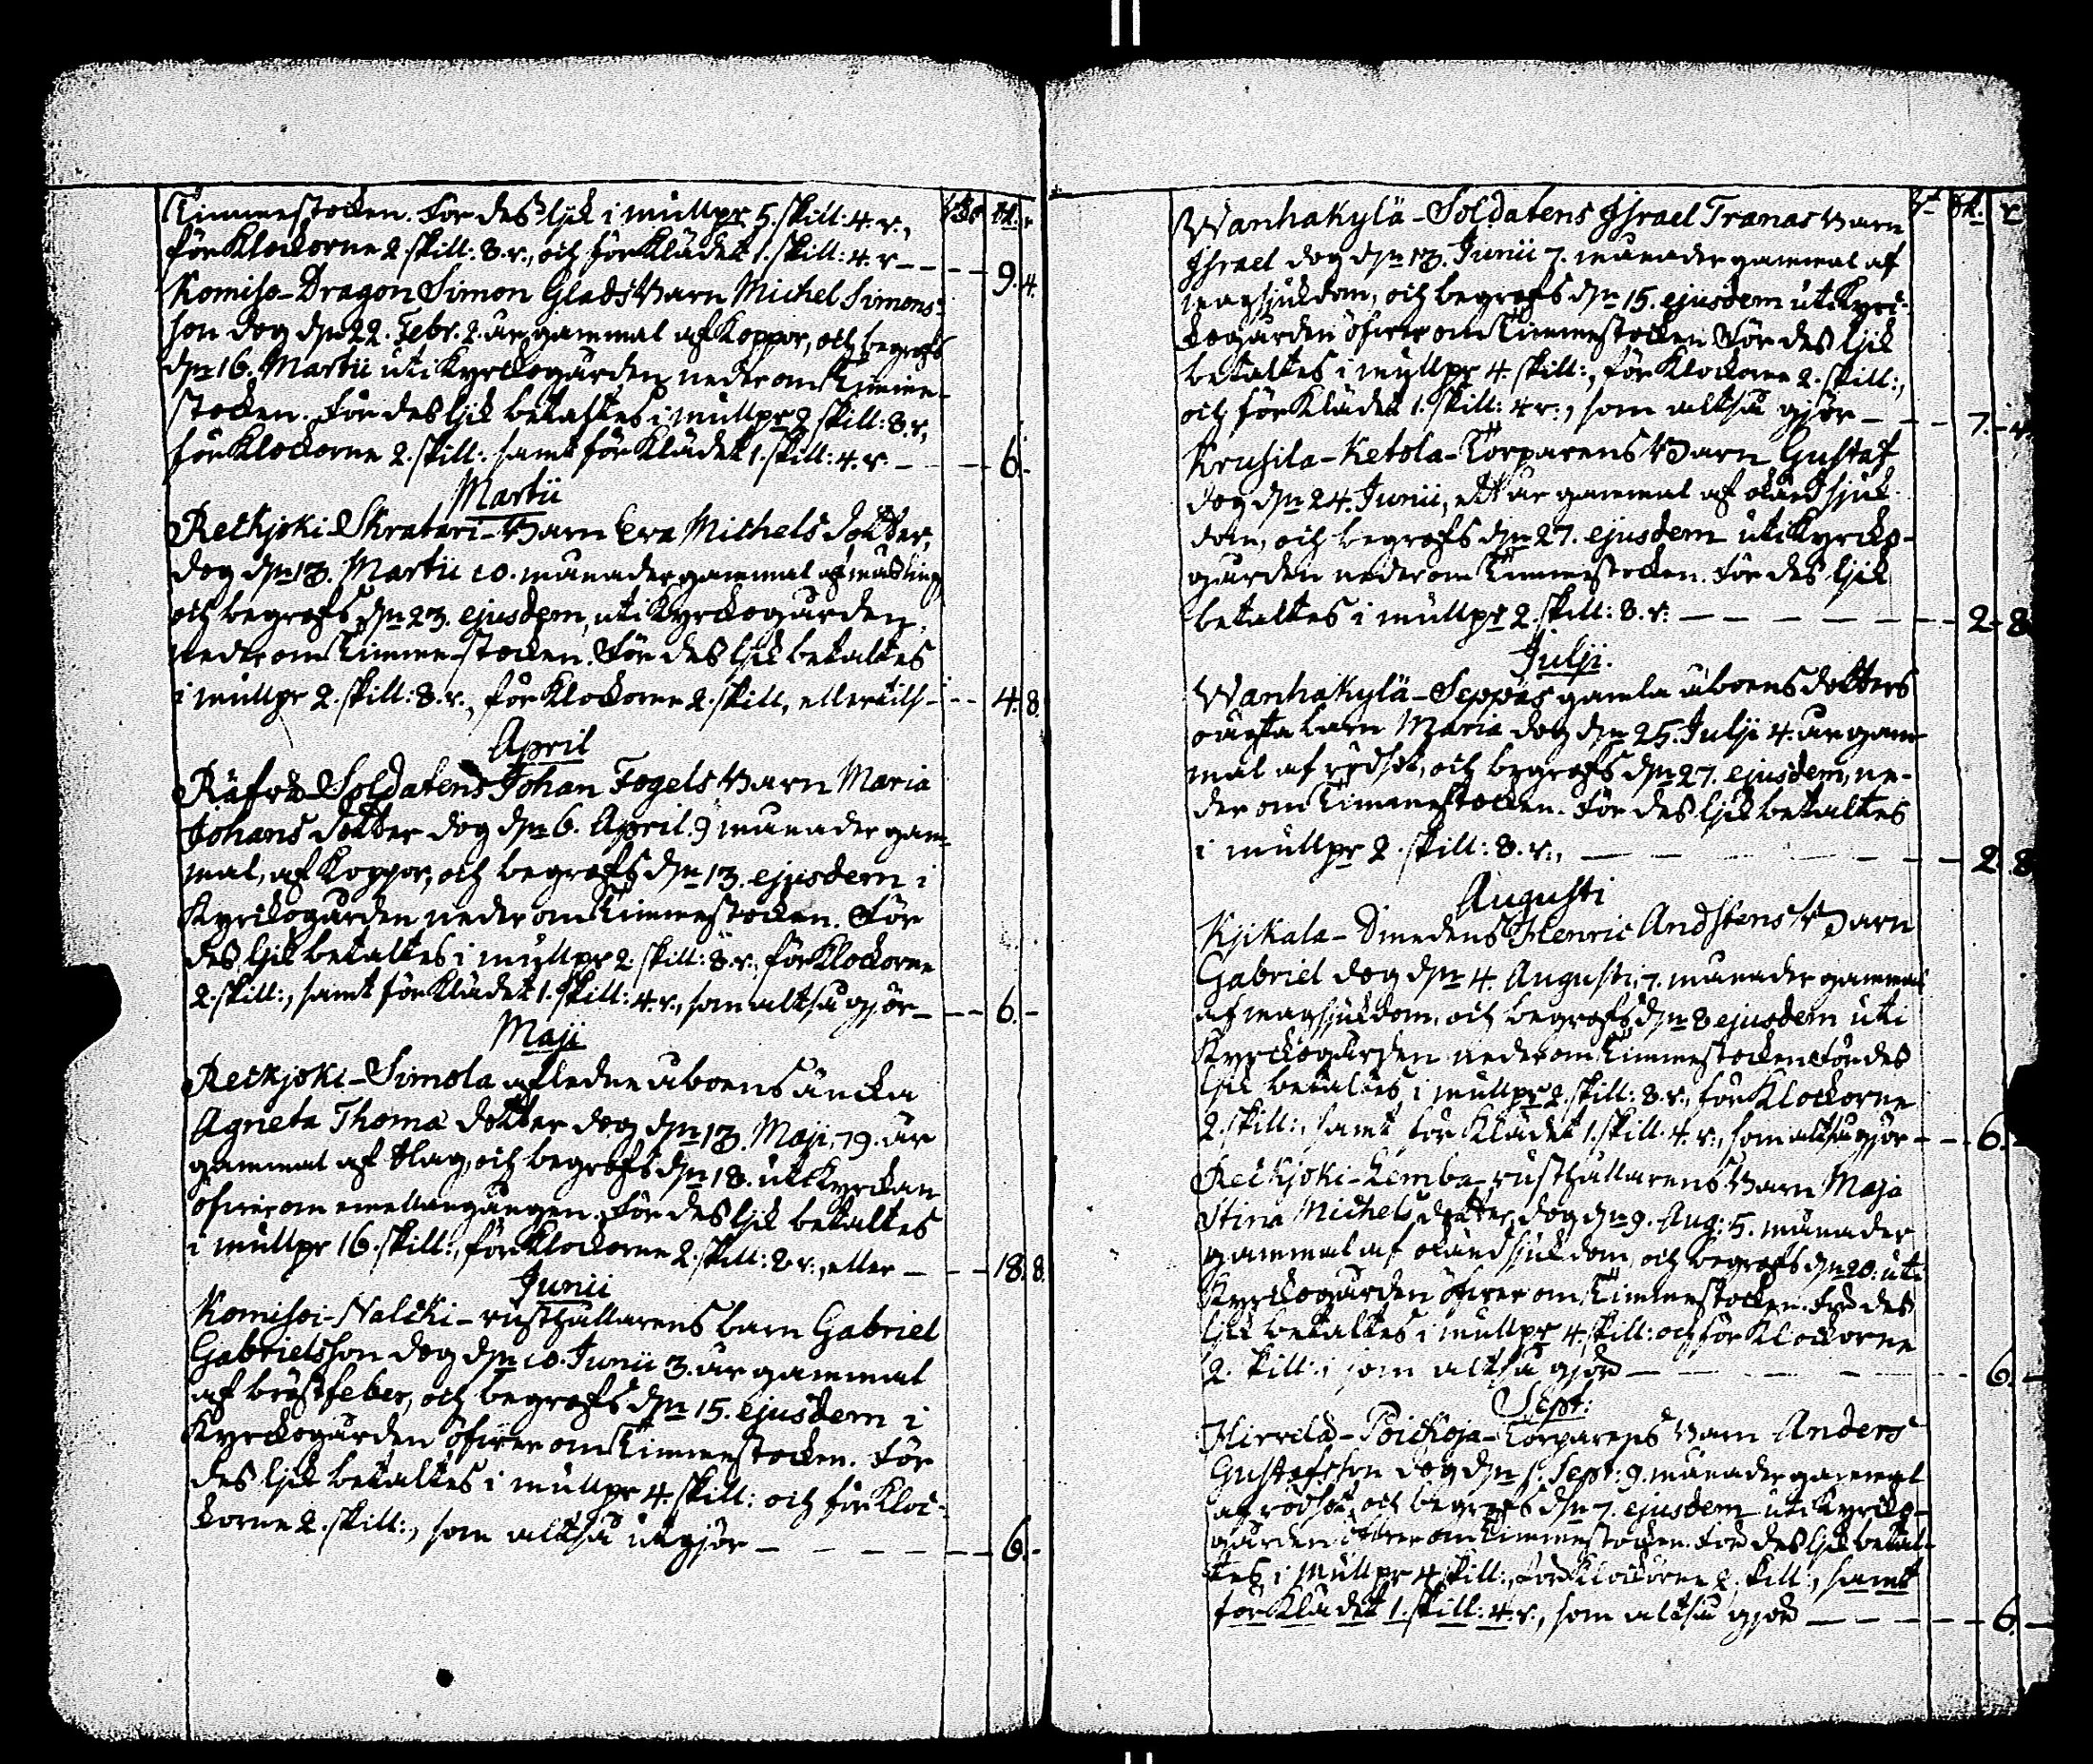 Timmerstocken. För des lijk i mullpr 5. skill: 4. r.,
för Klockorne 2 skill: 8. r., och för Klädet 1. skill: 4. r — — — 9. 4.
Komiso-Dragon Simon Glads Barn Michel Simons-
son dog dn 22. Febr. 2. år gammal af Koppor, och begrofs
dn 16. Martii uti Kyrckogården neder om Timmer-
stocken. För des lijk betaltes i mullpr 2 skill: 8. r,
för Klockorne 2. skill: samt för Klädet 1. skill: 4. r. — — 6. -
Martii
Reckjoki-Skratari-Barn Eva Michels dotter,
dog dn 13. Martii 10. månader gammal af mässling
och begrofs dn 23. ejusdem, uti Kyrckogården,
neder om Timmer-stocken. För des lijk betaltes
i mullpr 2. skill: 8. r., för Klockorne 2. skill, eller tills- — — 4. 8.
April
Räfvå-Soldatens Johan Fogels Barn Maria
Johans dotter dog dn 6. April. 9 månader gam-
mal, af Koppor, och begrofs dn 13. ejusdem i
Kyrckogården neder om Timmerstocken. För
des lijk betaltes i mullpr 2. skill: 8. r., för Klockorne
2. skill:, samt för Klädet 1. skill: 4. r., som altså gjör — — — 6. -
Maji
Reckjoki-Simola afledne åboens äncka
Agneta Thomæ dotter dog dn 13. Maji, 79. år
gammal af slag, och begrofs dn 18. uti Kyrckan
öfver om mellangången. För des lijk betaltes
i mullpr 16. skill:, för Klockorne 2. skill: 8 r., eller — — — 18. 8.
Junii
Komisoi-Nalcki-rusthållarens barn Gabriel
Gabrielsson dog dn 10. Junii 3. år gammal
af bröstfeber, och begrofs dn 15. ejusdem i
Kyrckogården öfver om Timmerstocken. För
des lijk betaltes i mullpr 4. skill: och för Kloc-
korne 2. skill:, som altså utgjör — — — — — 6. -
sk. r
Wanhakylä-Soldatens Jsrael Tranas Barn
Jsrael dog dn 13. Junii 7. månader gammal af
magsjukdom, och begrofs dn 15. ejusdem uti Kyrc-
kogården öfver om Timmerstocken För des lijk
betaltes i mullpr 4. skill:, för Klockorne 2. skill:,
och för Klädet 1. skill: 4 r., som altså gjör — — — 7. - 4.
Krusila-Ketola-Torparens Barn Gustaf
dog dn 24. Junii, ett år gammal af okänd sjuk-
dom, och begrofs dn 27. ejusdem uti Kyrcko-
gården neder om Timmerstocken. För des lijk
betaltes i mullpr 2. skill: 8. r: — — — — — 2 - 8
Julji.
Wanhakylä-Seppäs gamla åboens dotters
oäckta barn Maria dog dn 25. Julji 4. år gam-
mal af rödsot, och begrofs dn 27. ejusdem, ne-
der om Timmerstocken. För des lijk betaltes
i mullpr 2. skill: 8. r:, — — — — — 2. 8
Augusti
Kjikala-Smedens Henric Andstens Barn
Gabriel dog dn 4. Augusti, 7. månader gammal
af magsjukdom, och begrofs dn 8 ejusdem uti
Kyrckogården neder om Timmerstocken för des
lijk betaltes, i mullpr 2. skill: 8. r., för Klockorne
2. skill:, samt för Klädet 1. skill. 4. r., som altså gjör — — 6. -
Reckjoki-Lemba-rusthållarens Barn Maja
Stina Michels dotter, dog dn 9. Aug: 5. månader
gammal af okänd sjukdom, och begrofs dn 20. uti
Kyrckogården öfver om Timmerstocken. För des
lijk betaltes i mullpr 4. skill: och för Klockorne
2. skill:, som altså gjör — — — — — 6. —
Sept:
Hirvelä-Poickoja-Torparens Barn Anders
Gustafsson dog dn 1. Sept: 9. månader gammal
af rödsot, och begrofs dn 7. ejusdem uti Kyrcko-
gården öfver om Timmerstocken. För des lijk betal-
tes i mullpr 4 skill:, för Klockorne 2. skill:, samt
för Klädet 1. skill: 4. r., som altså gjör — — — — 6. —